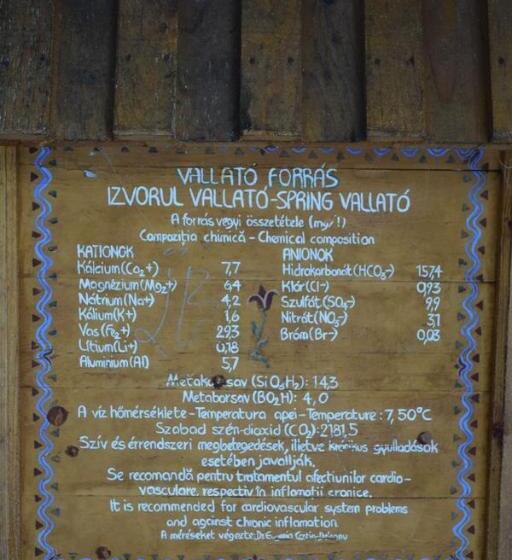 VALLATÓ FORRÁS
IZVORUL VALLATÓ-SPRING VALLATÓ
A forrás vegyi összetétele (mg/l)
Compoziția chimică - Chemical composition
KATIONOK ANIONOK
Kálcium(Ca2+) 7,7 Hidrokarbonát(HCO3-) 157,4
Magnézium(Mg2+) 6,4 Klór(Cl-) 0,93
Nátrium(Na+) 4,2 Szulfát(SO4-) 9,9
Kálium(K+) 1,6 Nitrát(NO3-) 3,1
Vas(Fe2+) 29,3 Bróm(Br-) 0,03
Lítium(Li+) 0,18
Alumínium(Al) 5,7
Metakovasav (SiO3H2): 14,3
Metaborsav (BO2H): 4,0
A víz hőmérséklete - Temperatura apei - Temperature: 7,50°C
Szabad szén-dioxid (CO2):2181,5
Szív és érrendszeri megbetegedések, illetve krónikus gyulladások
esetében javallják.
Se recomandă pentru tratamentul afectiunilor cardio-
vasculare, respectiv în inflamații cronice.
It is recommended for cardiovascular system problems
and against chronic inflamation.
A méréseket végezte: Dr.